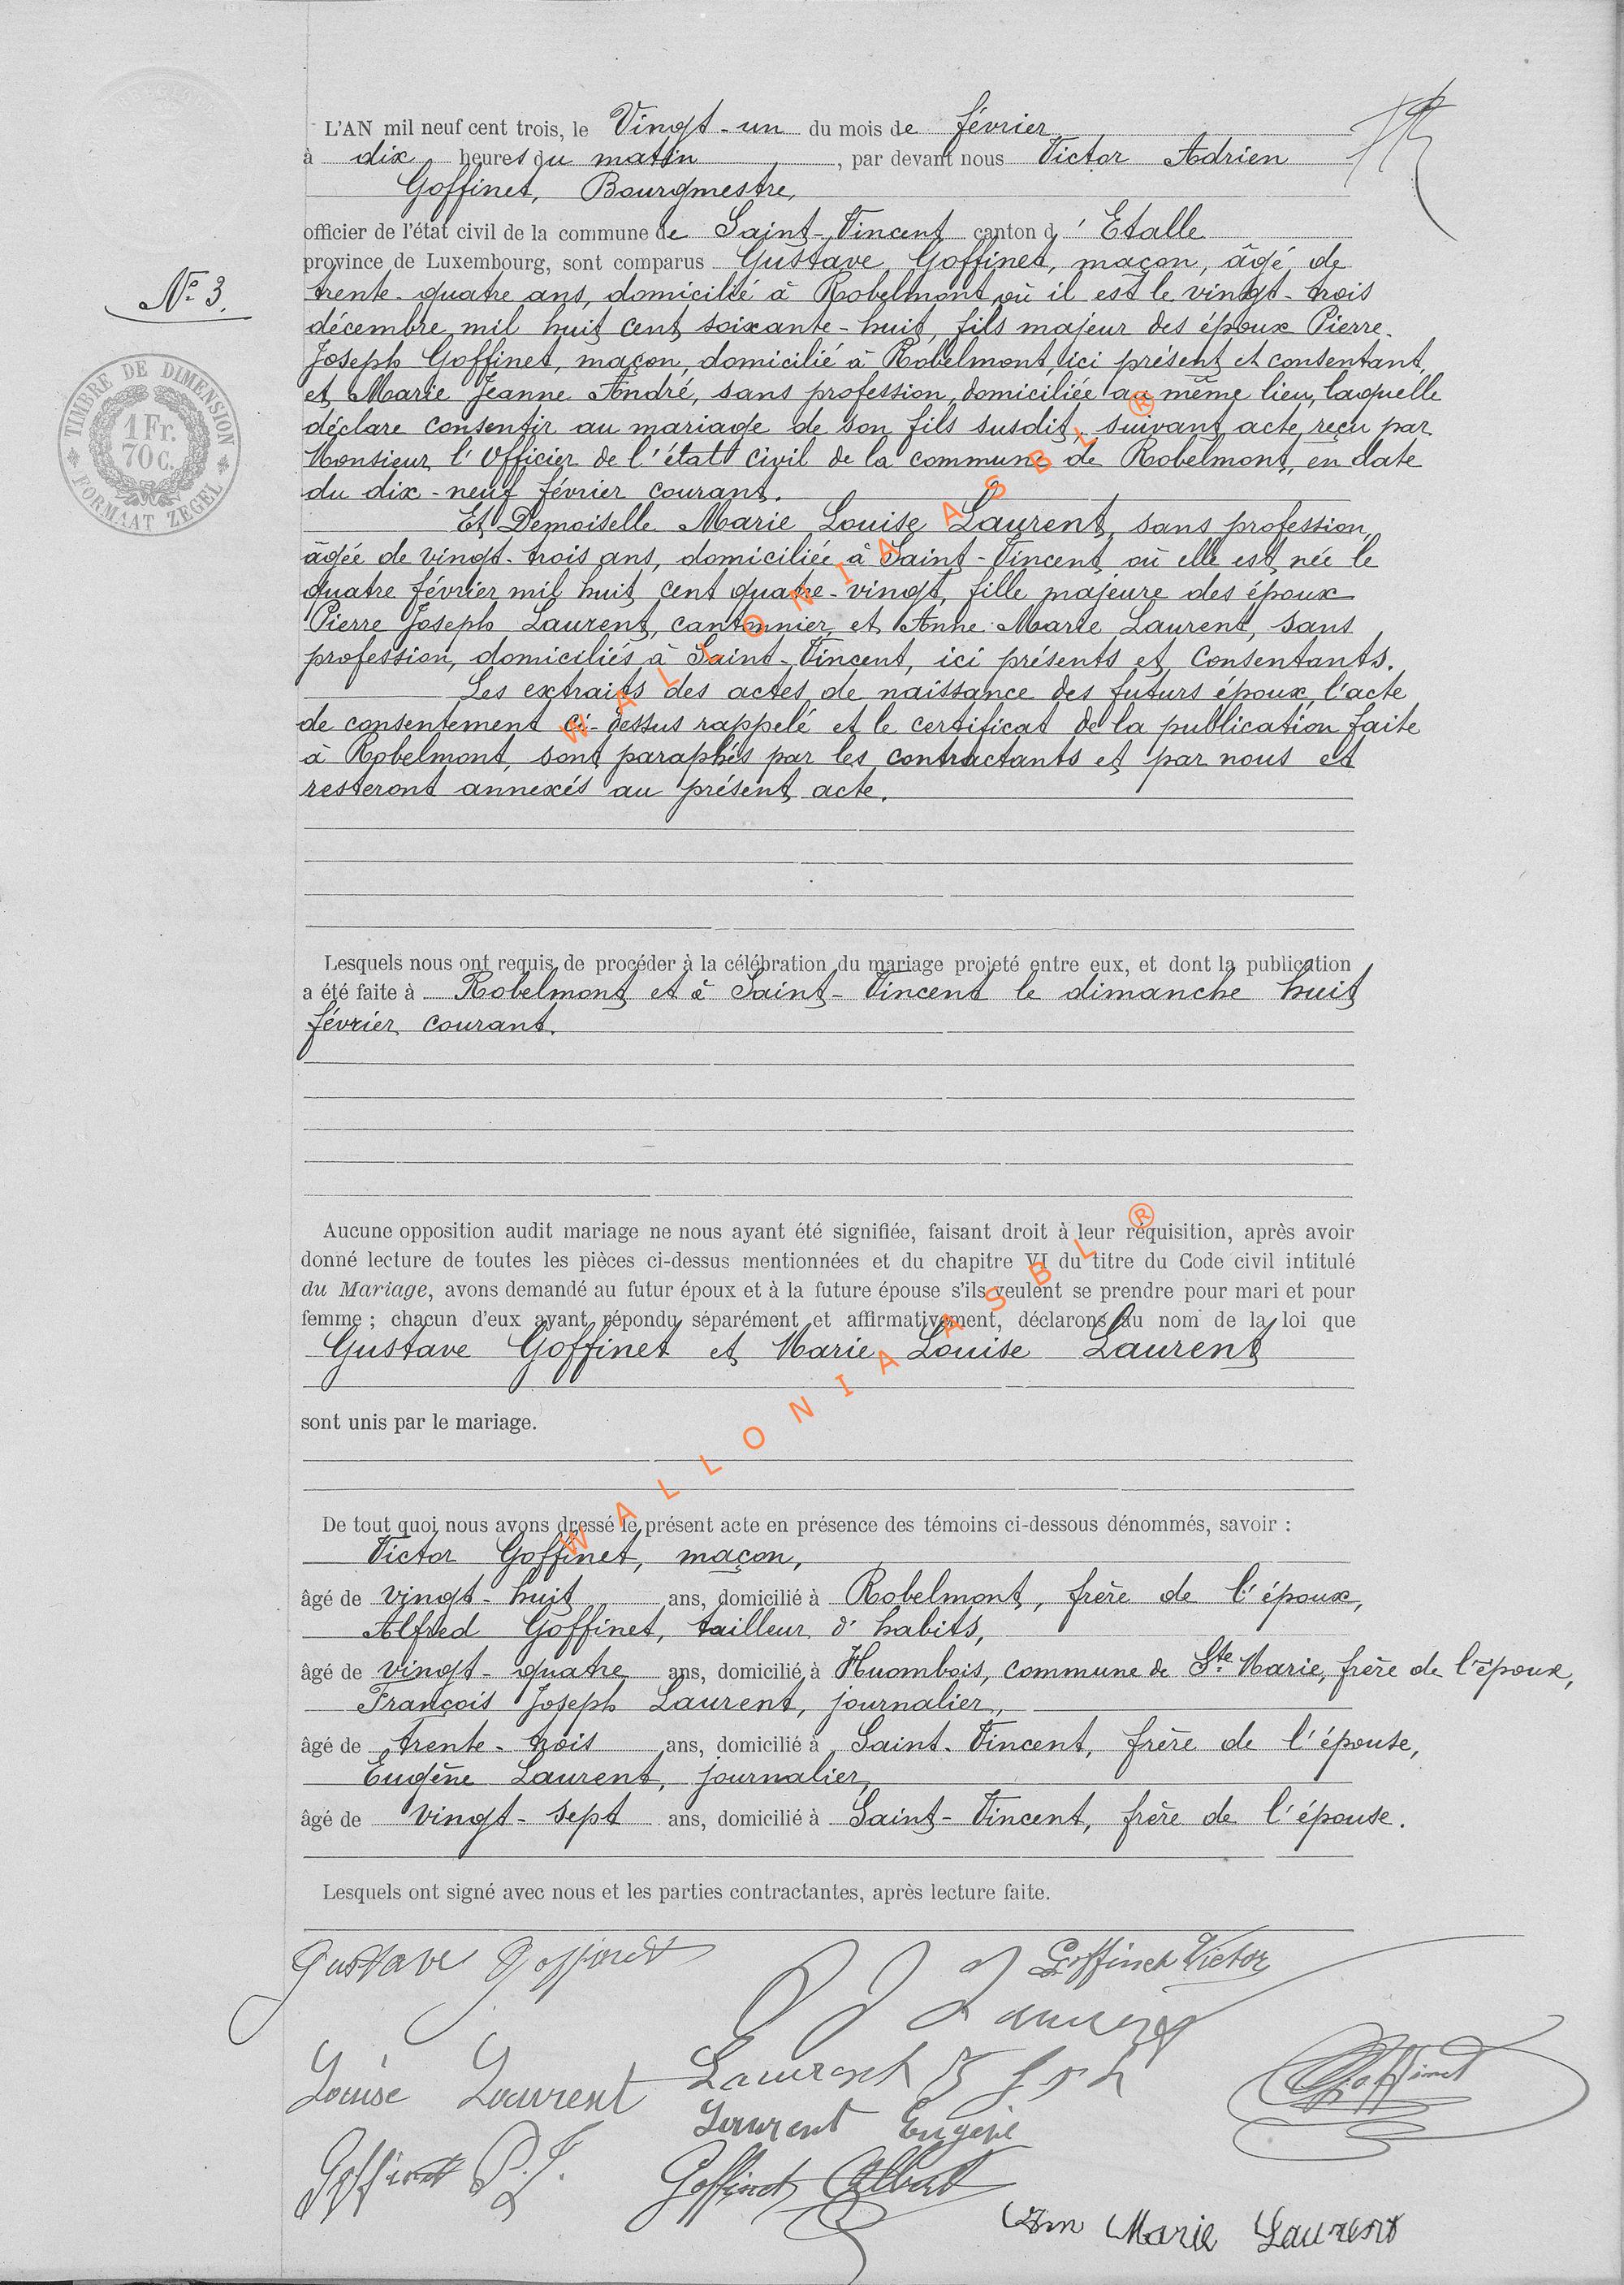 L'AN mil neuf cent trois, le Vingt-un du mois de février
à dix heures du matin, par devant nous Victor Adrien
Goffinet, Bourgmestre,
officier de l'état civil de la commune de Saint-Vincent canton d'Etalle
province de Luxembourg, sont comparus Gustave Goffinet, maçon, âgé de
trente-quatre ans, domicilié à Robelmont où il est le vingt-trois
décembre mil huit cent soixante-huit, fils majeur des époux Pierre-
Joseph Goffinet, maçon, domicilié à Robelmont, ici présent et consentant,
et Marie Jeanne André, sans profession, domiciliée au même lieu, laquelle
déclare consentir au mariage de son fils susdit, suivant acte reçu par
Monsieur l'Officier de l'état civil de la commune de Robelmont, en date
du dix-neuf février courant.
Et Demoiselle Marie Louise Laurent, sans profession,
âgée de vingt-trois ans, domiciliée à Saint-Vincent où elle est née le
quatre février mil huit cent quatre-vingt, fille majeure des époux
Pierre Joseph Laurent, cantonnier et Anne Marie Laurent, sans
profession, domiciliés à Saint-Vincent, ici présents et consentants.
Les extraits des actes de naissance des futurs époux, l'acte
de consentement ci-dessus rappelé et le certificat de la publication faite
à Robelmont, sont paraphés par les contractants et par nous et
resteront annexés au présent acte.
N° 3.
TIMBRE DE DIMENSION
1 Fr.
70 C.
FORMAAT ZEGEL
WALLONIA ASBL ®
Lesquels nous ont requis de procéder à la célébration du mariage projeté entre eux, et dont la publication
a été faite à Robelmont et à Saint-Vincent le dimanche huit
février courant.
Aucune opposition audit mariage ne nous ayant été signifiée, faisant droit à leur réquisition, après avoir
donné lecture de toutes les pièces ci-dessus mentionnées et du chapitre VI du titre du Code civil intitulé
du Mariage, avons demandé au futur époux et à la future épouse s'ils veulent se prendre pour mari et pour
femme ; chacun d'eux ayant répondu séparément et affirmativement, déclarons au nom de la loi que
Gustave Goffinet et Marie Louise Laurent
sont unis par le mariage.
WALLONIA ASBL ®
De tout quoi nous avons dressé le présent acte en présence des témoins ci-dessous dénommés, savoir :
Victor Goffinet, maçon,
âgé de vingt-huit ans, domicilié à Robelmont, frère de l'époux,
Alfred Goffinet, tailleur d'habits,
âgé de vingt-quatre ans, domicilié à Huombois, commune de Ste Marie, frère de l'époux,
François Joseph Laurent, journalier,
âgé de trente-trois ans, domicilié à Saint-Vincent, frère de l'épouse,
Eugène Laurent, journalier,
âgé de vingt-sept ans, domicilié à Saint-Vincent, frère de l'épouse.
Lesquels ont signé avec nous et les parties contractantes, après lecture faite.
Gustave Goffinet
Goffinet Victor
Laurent
Louise Laurent
Laurent
Goffinet
Laurent Eugène
Goffinet P.J.
Goffinet Albert
Marie Laurent